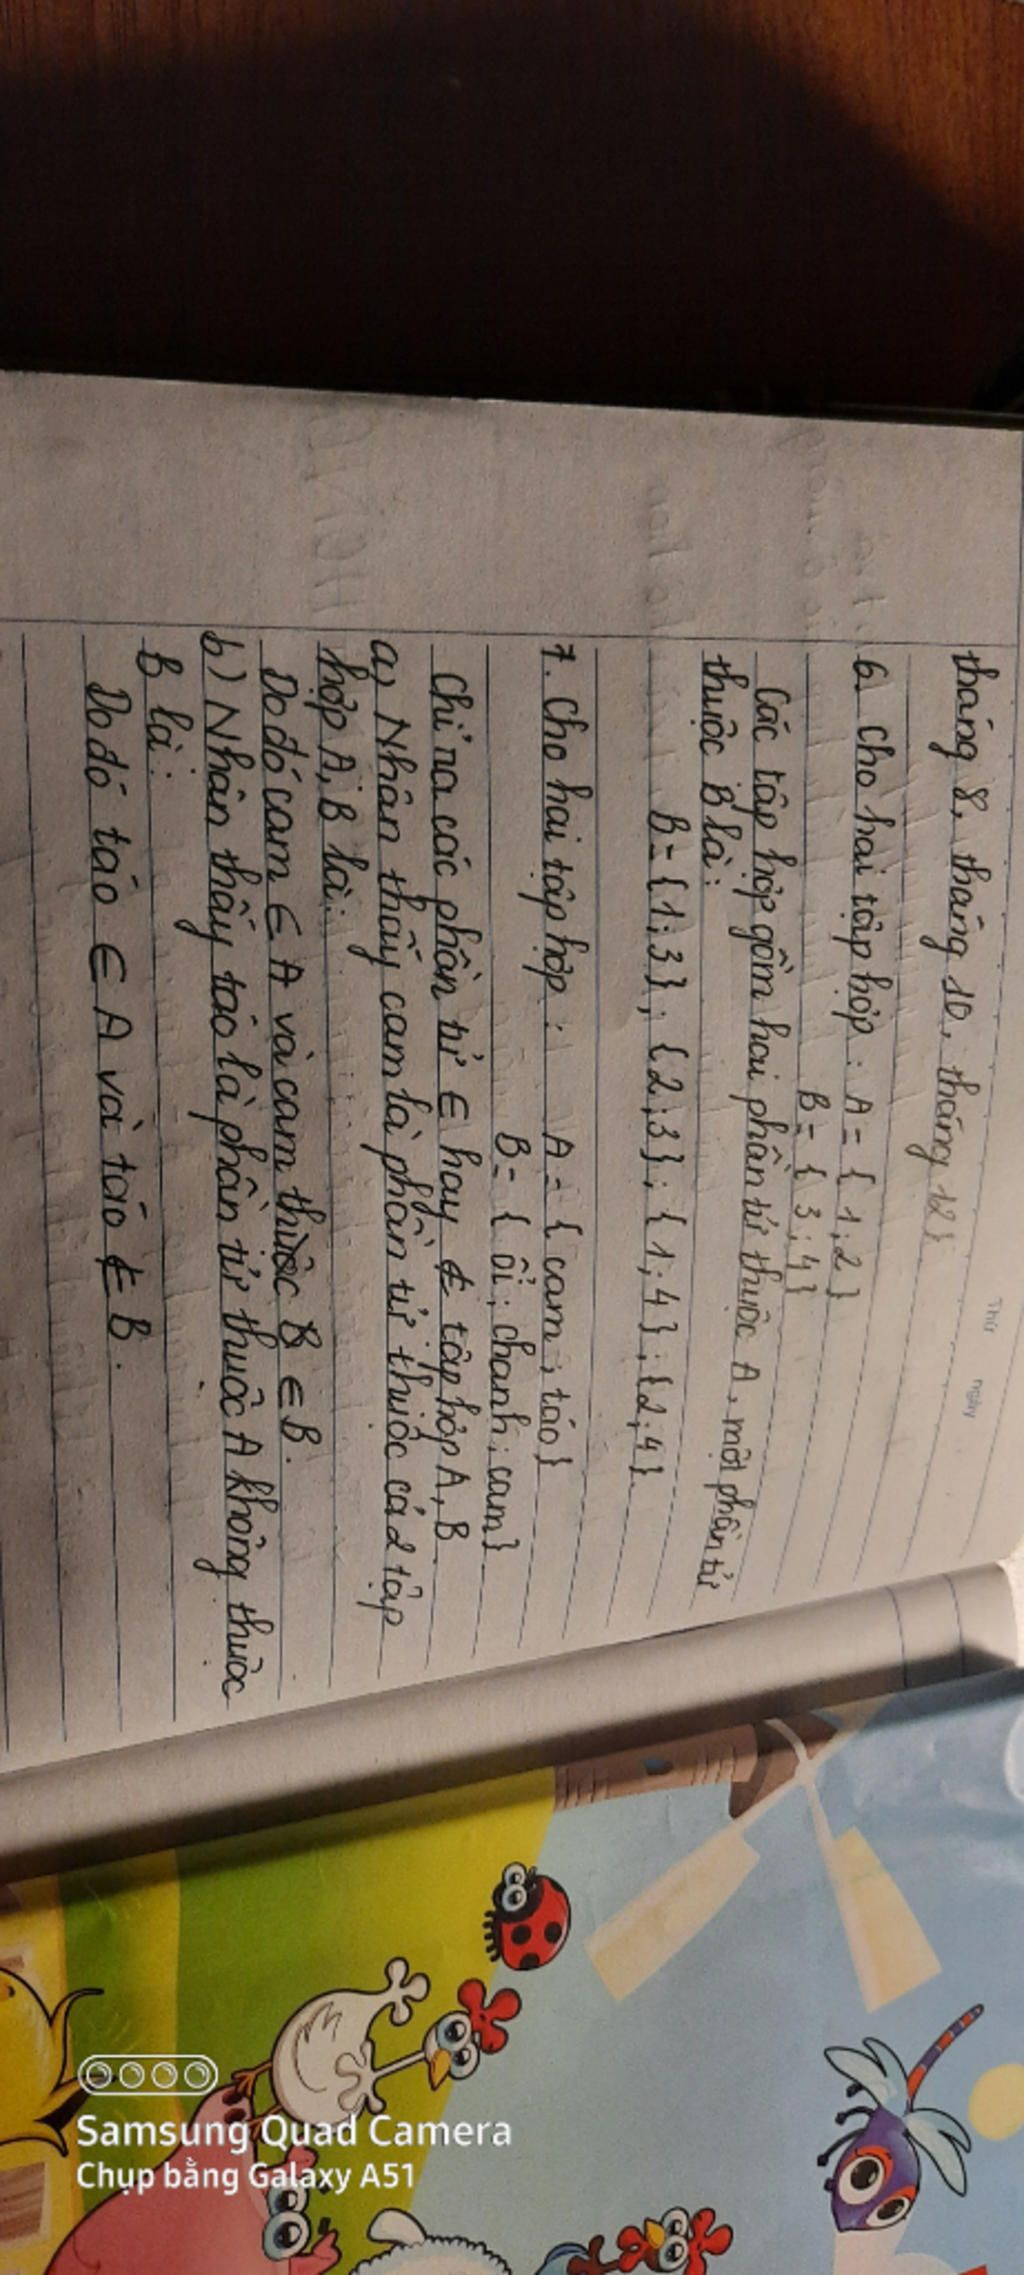 Thứ ngày
tháng 8, tháng 10, tháng 12}
6. Cho hai tập hợp : A = { 1 ; 2 }
B = { 3 ; 4 }
Các tập hợp gồm hai phần tử thuộc A, một phần tử
thuộc B là :
B = { 1 ; 3 } ; { 2 ; 3 } ; { 1 ; 4 } ; { 2 ; 4 }.
7. Cho hai tập hợp : A = { cam ; táo }
B = { ổi ; chanh ; cam }
Chỉ ra các phần tử ∈ hay ∉ tập hợp A, B
a) Nhân thấy cam là phần tử thuộc cả 2 tập
hợp A, B là :
Do đó cam ∈ A và cam thuộc B ∈ B.
b) Nhân thấy táo là phần tử thuộc A không thuộc
B là :
Do đó táo ∈ A và táo ∉ B.
Samsung Quad Camera
Chụp bằng Galaxy A51